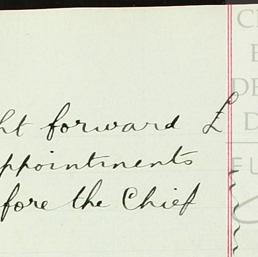 ht forward £
ppointments
fore the Chief